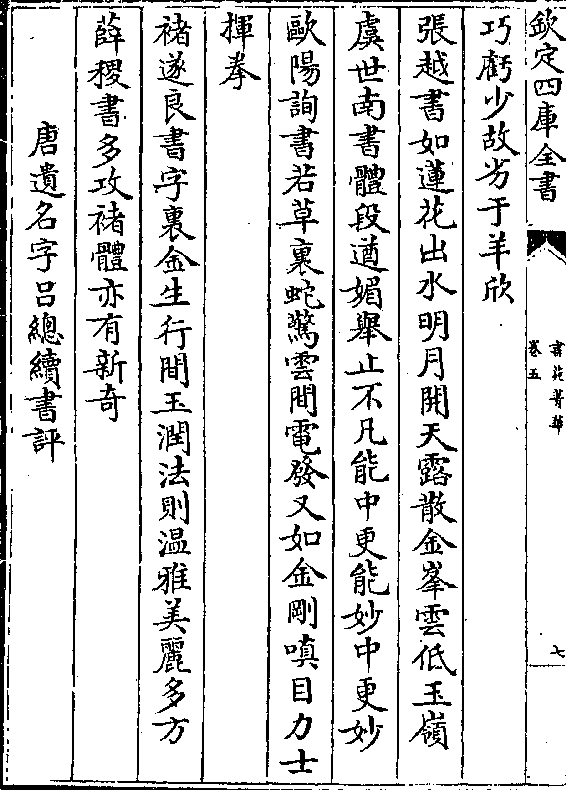 欽定四庫全書
書苑菁華
卷五
七
巧虧少故劣于羊欣
張越書如蓮花出水明月開天露散金峯雲低玉嶺
虞世南書體段遒媚舉止不凡能中更能妙中更妙
歐陽詢書若草裏蛇驚雲間電發又如金剛嗔目力士
揮拳
褚遂良書字裏金生行間玉潤法則温雅美麗多方
薛稷書多攻褚體亦有新奇
唐遺名字吕總續書評